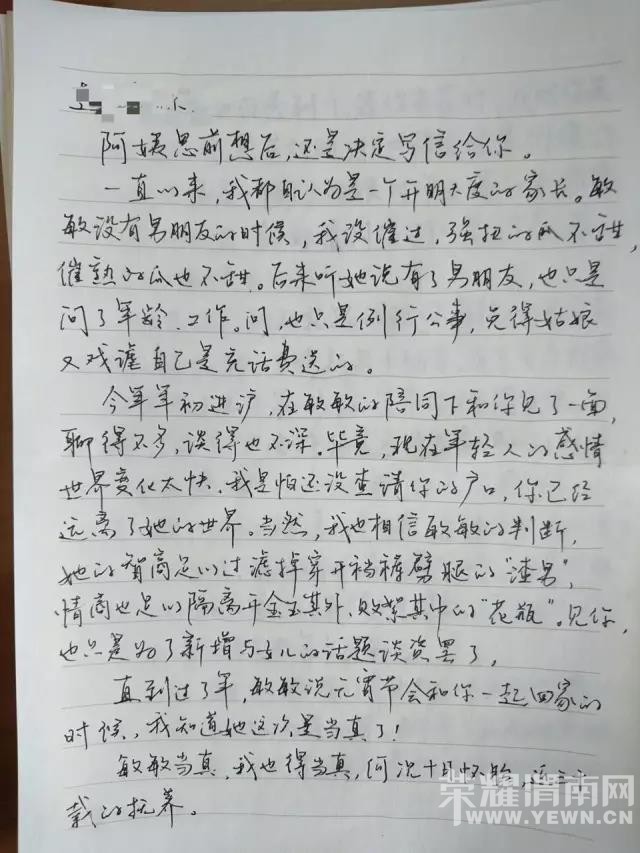 阿姨思前想后，还是决定写信给你。
一直以来，我都自认为是一个开明大度的家长。敏
敏没有男朋友的时候，我没催过，强扭的瓜不甜，
催熟的瓜也不甜。后来听她说有了男朋友，也只是
问了年龄、工作。问，也只是例行公事，免得姑娘
又戏谑自己是充话费送的。
今年年初进沪，在敏敏的陪同下和你见了一面，
聊得不多，谈得也不深。毕竟，现在年轻人的感情
世界变化太快，我是怕还没查清你的户口，你已经
远离了她的世界。当然，我也相信敏敏的判断，
她的智商足以过滤掉穿开裆裤劈腿的“渣男”，
情商也足以隔离开金玉其外、败絮其中的“花瓶”。见你，
也只是为了新增与女儿的话题谈资罢了。
直到过了年，敏敏说元宵节会和你一起回家的
时候，我知道她这次是当真了！
敏敏当真，我也得当真，何况十月怀胎，
载的抚养。
荣耀渭南网
WWW.YEWN.CN